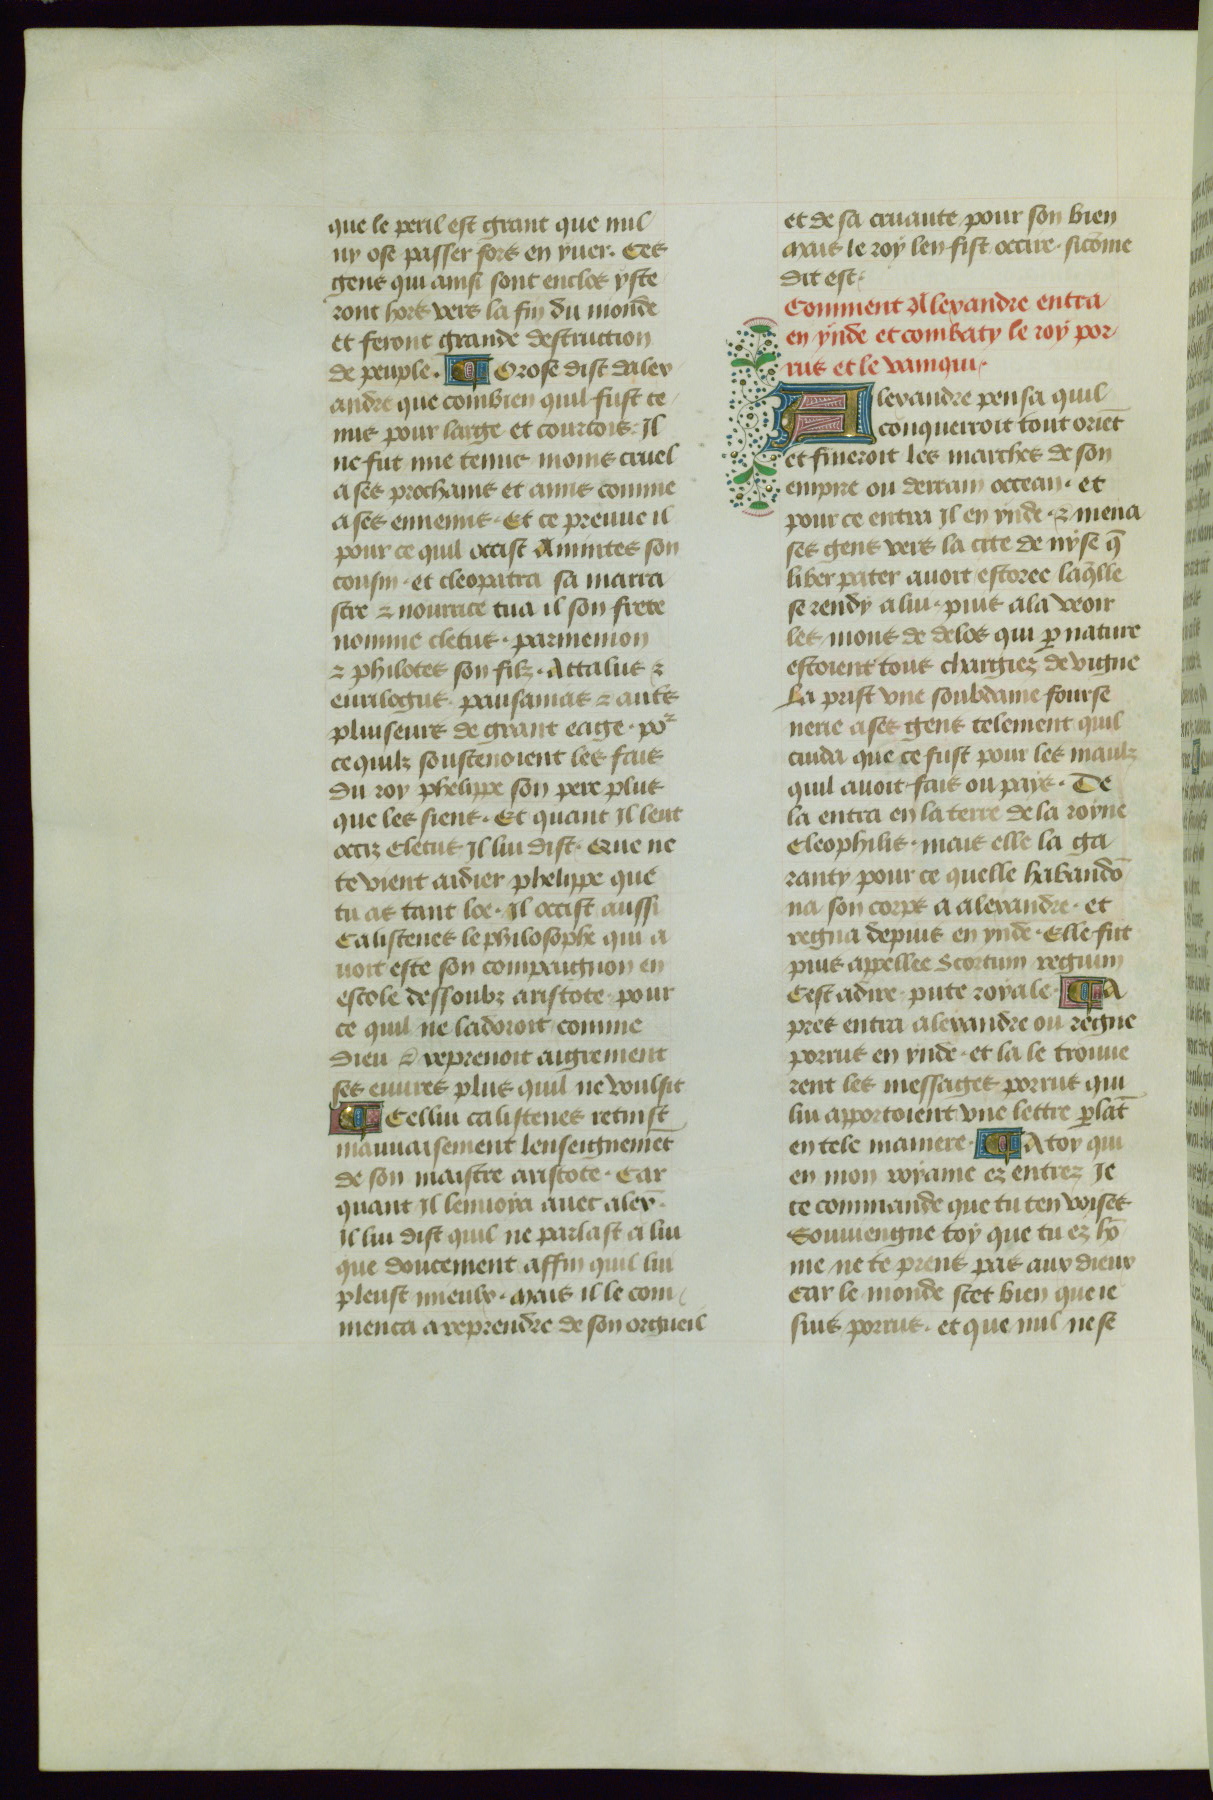 que le peril est grant que nul
ny ose passer fors en yuer. Ces
gens qui ainsi sont enclos yste
ront hors vers la fin du monde
et feront grande destruction
de peuple. Orose dist dalex
andre que combien quil fust te
nus pour large et courtois. Il
ne fut mie tenus moins cruel
a ses prochains et amis comme
a ses ennemis. Et ce preuue il
pour ce quil occist Amintes son
cousin. et cleopatra sa marra
stre ⁊ nourrice tua il son frere
nomme cletus. parmenion
⁊ philotes son filz. Attalus ⁊
eurilogus. pausanias ⁊ aultrs
pluiseurs de grant eage. por
ce quilz soustenoient les fais
du roy phelippe son pere plus
que les siens. Et quant Il leut
occiz Cletus Il lui dist. Que ne
te vient aidier phelippe que
tu as tant loe. Il occist aussi
Calistenes le philosophe qui a
uoit este son compaignon en
escole dessoubz aristote pour
ce quil ne ladoroit comme
dieu ⁊ reprenoit aigrement
ses euures plus quil ne voulsit
Cellui calistenes retinst
mauuaisement lenseignemēt
de son maistre aristote. Car
quant Il lenuoya auec alex̄.
Il lui dist quil ne parlast a lui
que doucement affin quil lui
pleust mieulx. Mais il le com
menca a reprendre de son orgueil
et de sa cruaute pour son bien
Mais le roy len fist occire. sicōme
dit est.
Comment Alexandre entra
en ynde et combaty le roy por
rus et le vainqui.
Alexandre pensa quil
conquerroit tout oriēt
et fineroit les marches de son
empire ou derrain occean. et
pour ce entra Il en ynde. ⁊ mena
ses gens vers la cite de nyse q̄
liber pater auoit estoree laq̄lle
se rendy a lui. puis ala veoir
les mons de delos qui ꝑ nature
estoient tous chargiez de vigne
La prist vne soubdaine fourse
nerie a ses gens telement quil
cuida que ce fust pour les maulz
quil auoit fais ou pays. De
la entra en la terre de la royne
Cleophilis. mais elle la ga
ranty pour ce quelle habandō
na son corps a alexandre. et
regna depuis en ynde. Elle fut
puis appellee Scortum regium
Cest adire pute royale. A
pres entra alexandre ou regne
porrus en ynde. et la le trouue
rent les messages porrus qui
lui apportoient vne lettre ꝑlāt
en tele maniere. A toy qui
en mon royame ez entrez Je
te commande que tu ten voises
Souuiengne toy que tu ez hō
me ne te prens pas aux dieux
Car le monde scet bien que ie
suis porrus. et que nul ne se